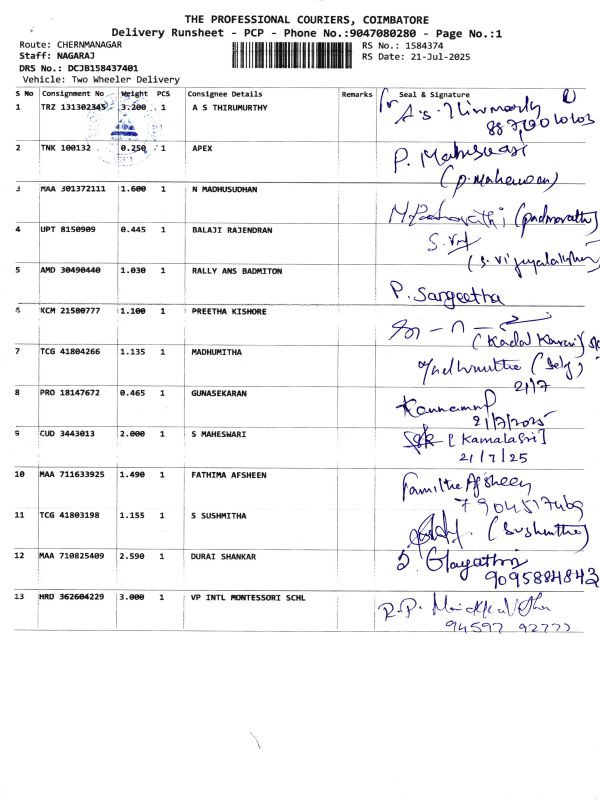 THE PROFESSIONAL COURIERS, COIMBATORE
Delivery Runsheet - PCP - Phone No.:9047080280 - Page No.:1
Route: CHERNMANAGAR RS No.: 1584374
Staff: NAGARAJ RS Date: 21-Jul-2025
DRS No.: DCJB158437401
Vehicle: Two Wheeler Delivery
S No Consignment No Weight PCS Consignee Details Remarks Seal & Signature
1 TRZ 131302345 3.200 1 A S THIRUMURTHY A.S. Thirumurthy
2 TNK 100132 0.250 1 APEX P. Maheswari
(P. Maheswari)
3 MAA 301372111 1.600 1 N MADHUSUDHAN (padmavathi)
4 UPT 8150909 0.445 1 BALAJI RAJENDRAN
5 AMD 30490440 1.030 1 RALLY ANS BADMITON P. Sangeetha
6 KCM 21500777 1.100 1 PREETHA KISHORE
7 TCG 41804266 1.135 1 MADHUMITHA (Self)
21/7
8 PRO 18147672 0.465 1 GUNASEKARAN
21/7/2025
9 CUD 3443013 2.000 1 S MAHESWARI [KamalaSri]
21/7/25
10 MAA 711633925 1.490 1 FATHIMA AFSHEEN Afsheen
7904517469
11 TCG 41803198 1.155 1 S SUSHMITHA (Sushmitha)
12 MAA 710825409 2.590 1 DURAI SHANKAR D. Gayathri
9095884843
13 HRD 362604229 3.000 1 VP INTL MONTESSORI SCHL R.P.
94597 92777